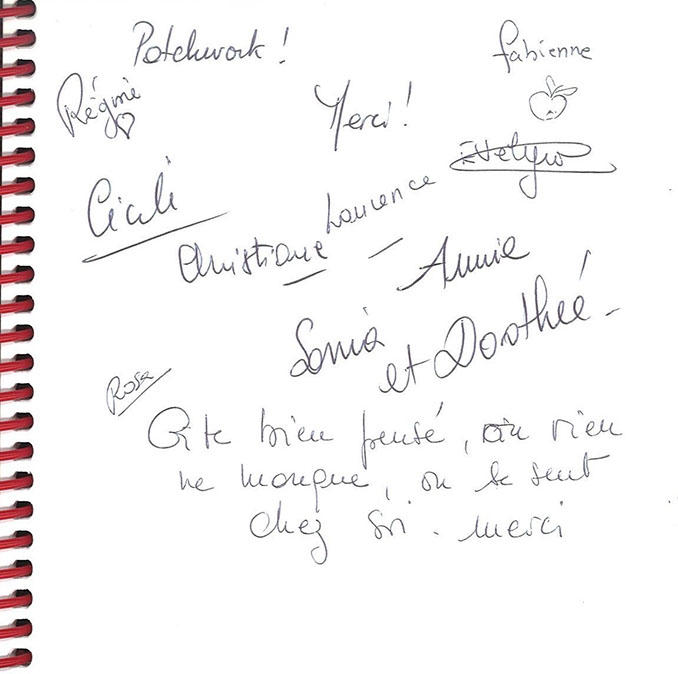 Patchwork !
fabienne
Régine
Merci !
Evelyne
Cécile
Laurence
Christiane
Annie
Sonia
et Dorothée -
Rosa
Gite bien pensé, où rien
ne manque, on se sent
chez soi. merci